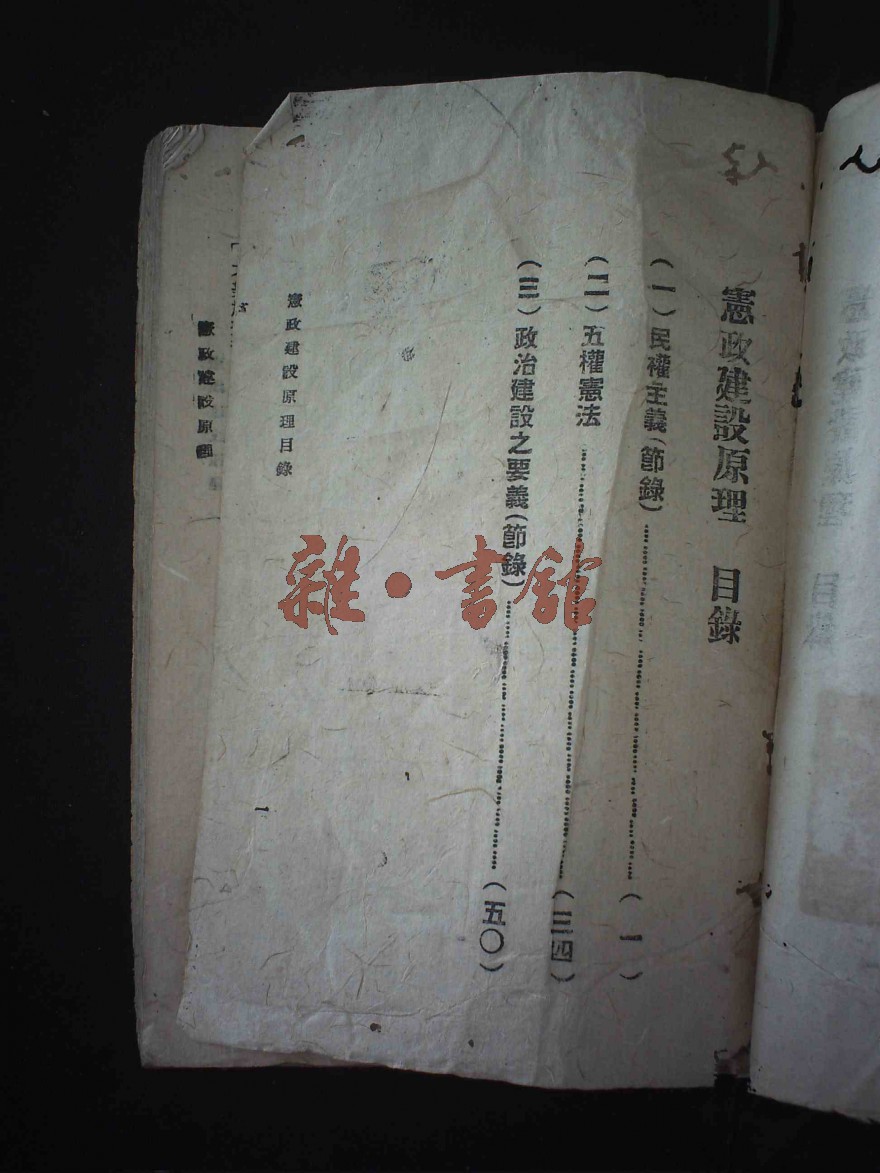 憲政建設原理　目錄
（一）民權主義（節錄）……（一）
（二）五權憲法……（三四）
（三）政治建設之要義（節錄）……（五〇）
憲政建設原理目錄
一
憲政建設原
雜·書館